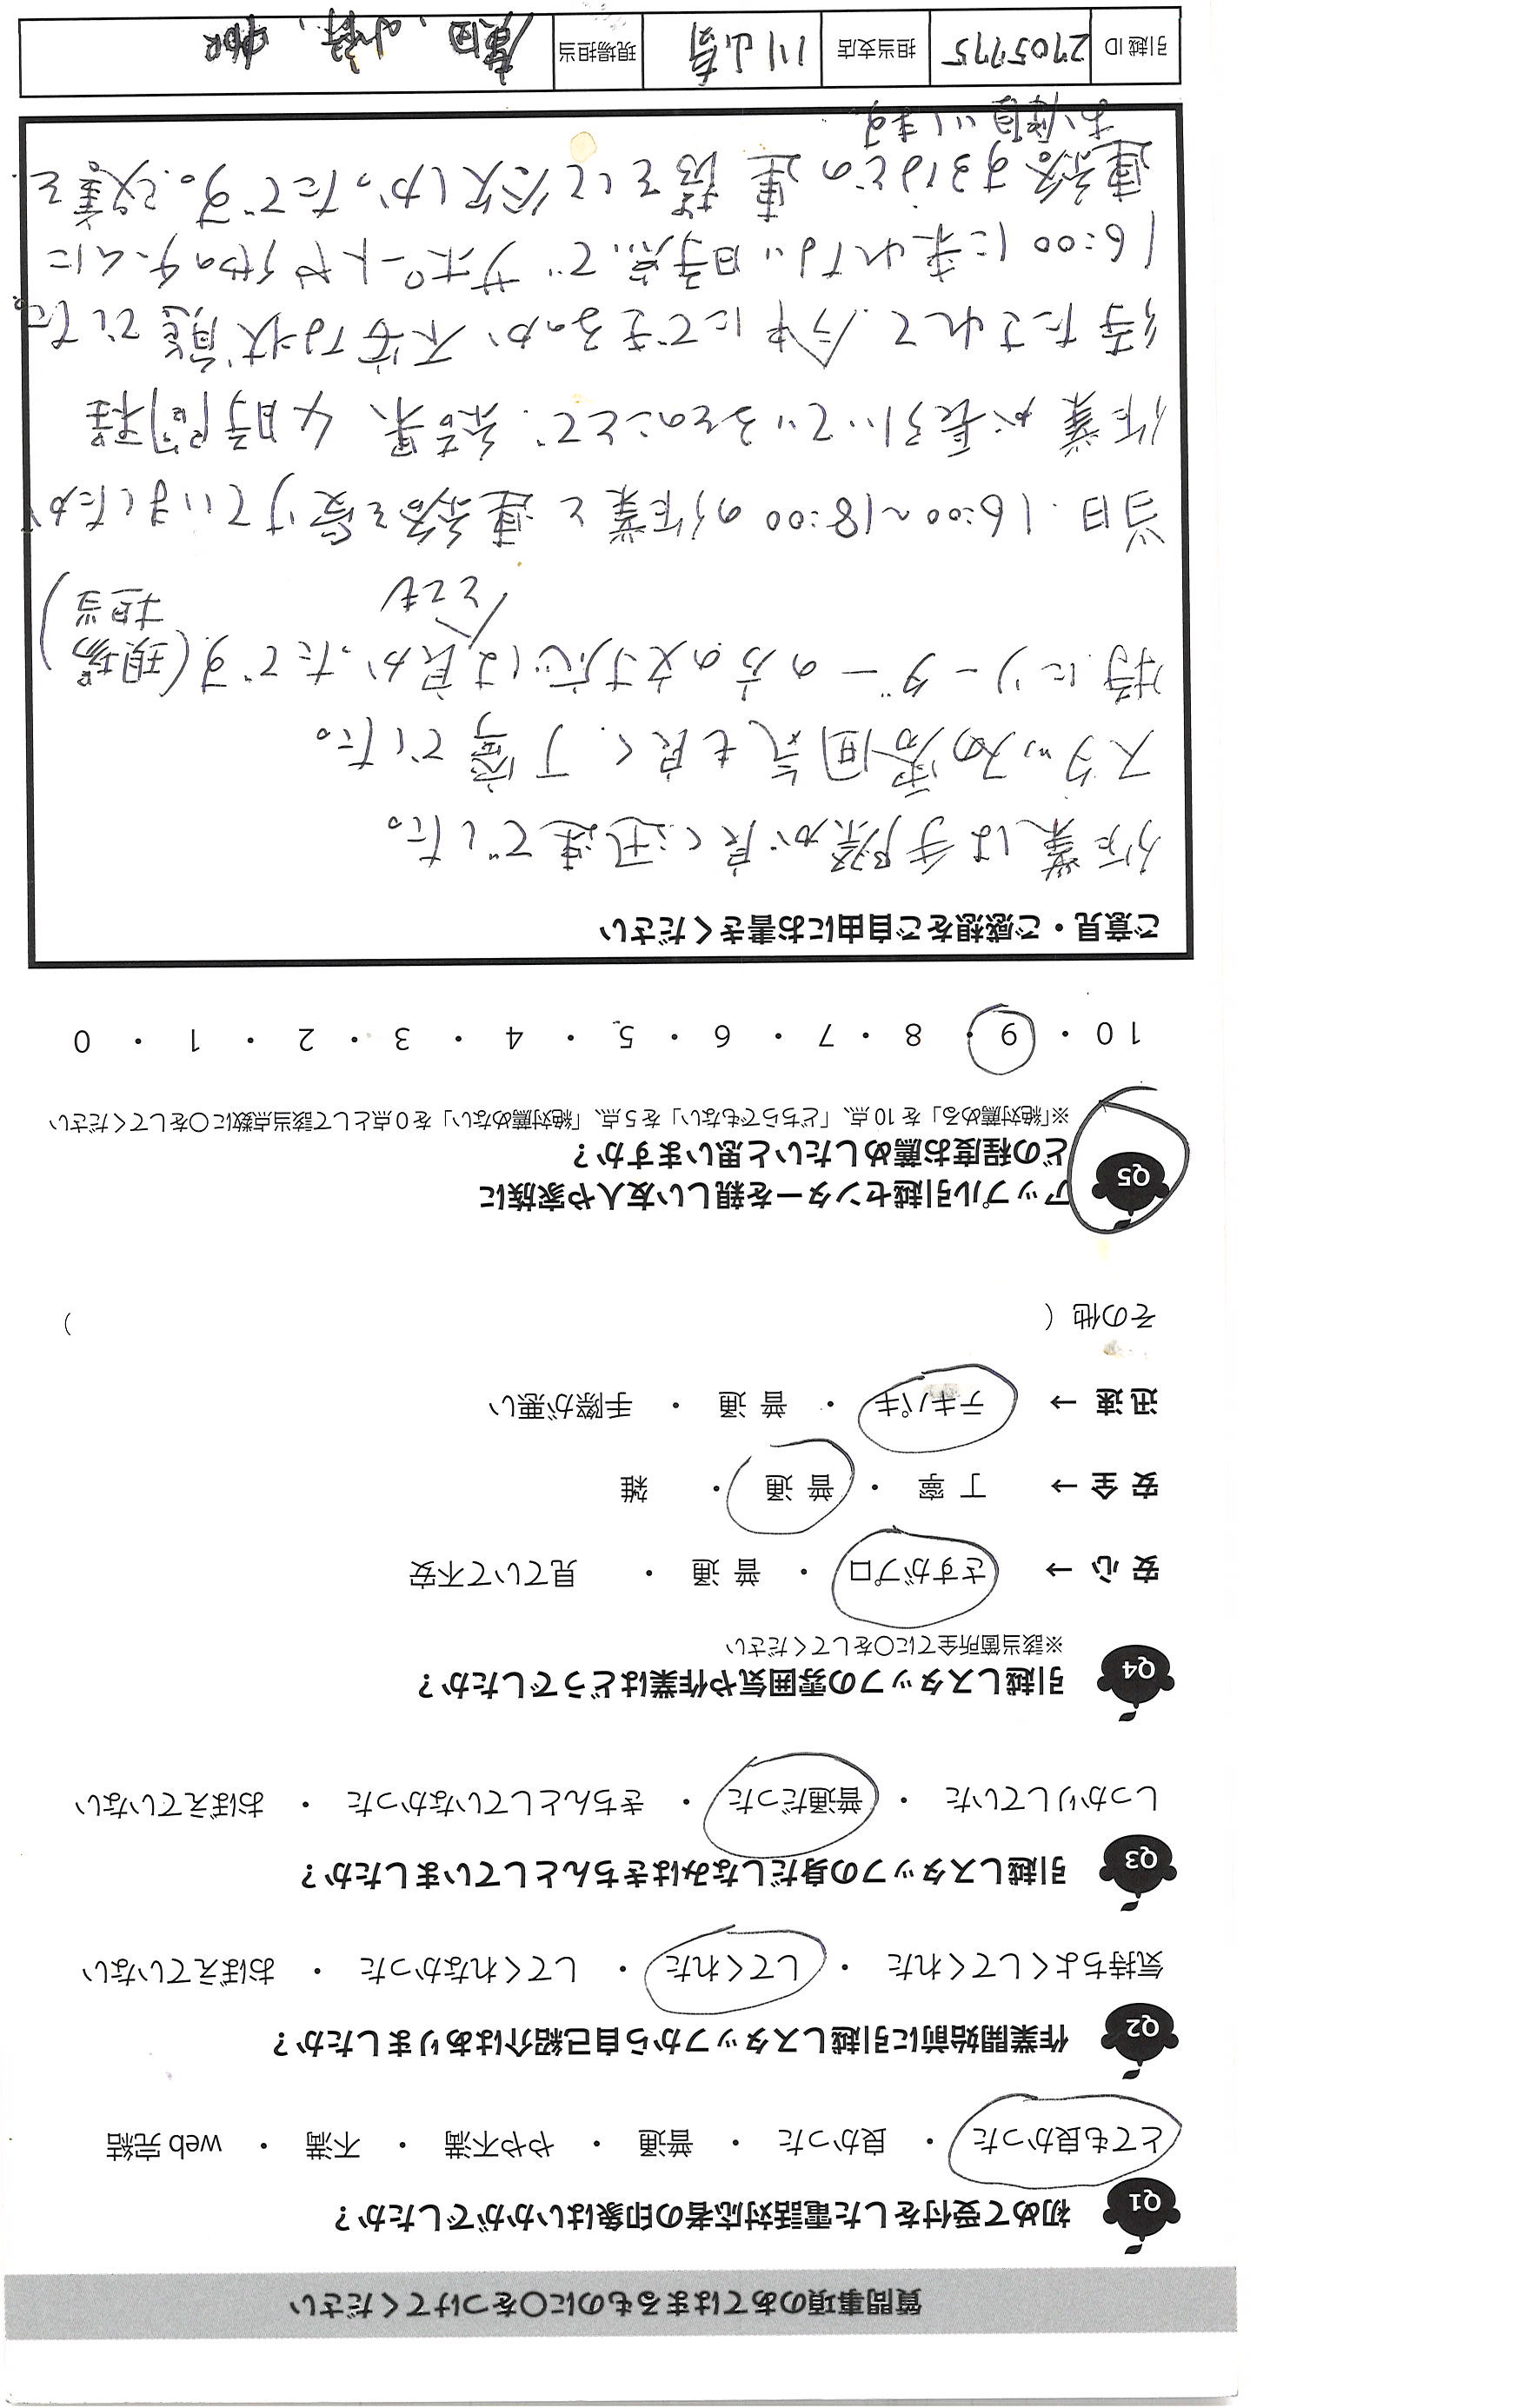 質問事項のあてはまるものに〇をつけてください
Q1 初めて受付をした電話対応者の印象はいかがでしたか？
とても良かった ・ 良かった ・ 普通 ・ やや不満 ・ 不満 ・ web 完結
Q2 作業開始前に引越しスタッフから自己紹介はありましたか？
気持ちよくしてくれた ・ してくれた ・ してくれなかった ・ おぼえていない
Q3 引越しスタッフの身だしなみはきちんとしていましたか？
しっかりしていた ・ 普通だった ・ きちんとしていなかった ・ おぼえていない
Q4 引越しスタッフの雰囲気や作業はどうでしたか？
※該当箇所全てに〇をしてください
安 心 → さすがプロ ・ 普 通 ・ 見ていて不安
安 全 → 丁 寧 ・ 普 通 ・ 雑
迅 速 → テキパキ ・ 普 通 ・ 手際が悪い
その他（ ）
Q5 アップル引越センターを親しい友人や家族に
どの程度お薦めしたいと思いますか？
※「絶対薦める」を 10 点、「どちらでもない」を 5 点、「絶対薦めない」を 0 点として該当点数に〇をしてください
10 ・ 9 ・ 8 ・ 7 ・ 6 ・ 5 ・ 4 ・ 3 ・ 2 ・ 1 ・ 0
ご意見・ご感想をご自由にお書きください
作業は手際が良く迅速でした。
スタッフの雰囲気も良く、丁寧でした。
特にリーダーの方の対応はとても良かったです(現場担当)
当日、16:00～18:00の作業と連絡を受けていましたが
作業が長引いているとのことで、結果 4時間程
待たされて、今日中にできるのか不安な状態でした。
16:00に来れない時点で、サポートや他のチームに
連絡するなどの連携をして欲しかったです。改善を
お願いします。
引越 ID 2705775 担当支店 現場担当